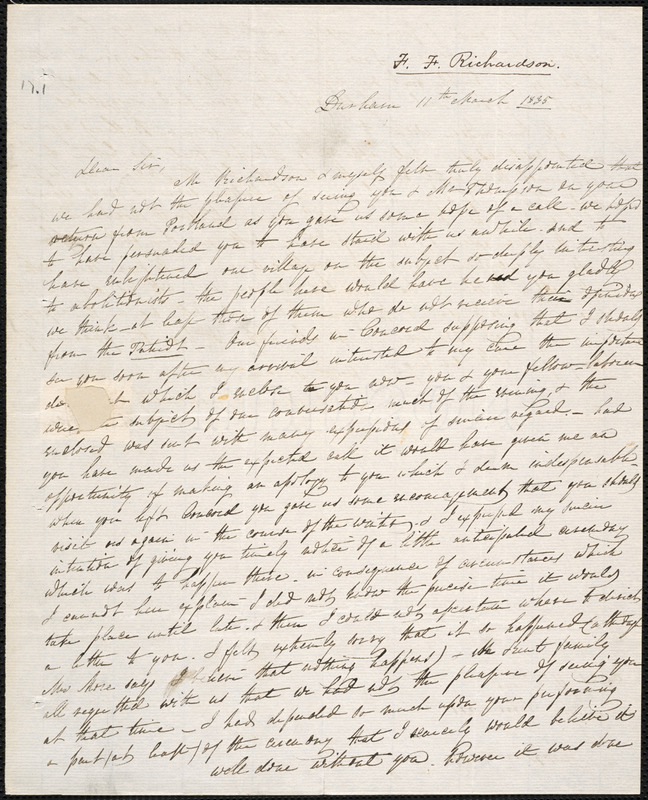 F. F. Richardson.
Durham 11th March 1835
Dear Sir,
Mr Richardson & myself felt truly disappointed that
we had not the pleasure of seeing you & Mr Thompson on your
return from Portland as you gave us some hope of a call - we hoped
to have persuaded you to have staid with us awhile - and to
have enlightened our village on the subject so deeply interesting
to abolitionists - the people here would have heard you gladly
we think - at least those of them who do not receive their opinions
from the Patriot - Our friends in Concord supposing that I should
see you soon after my arrival intrusted to my care the important
which I enclose to you now - you & your fellow-laborer
were the subject of our conversation much of the evening & the
enclosed was sent with many expressions of sincere regard. - had
you have made us the expected call it would have given me an
opportunity of making an apology to you which I deem indispensable
when you left Concord you gave us some encouragement that you should
visit us again in the course of the winter, & I expressed my sincere
intention of giving you timely notice of a little anticipated ceremony
which was to happen there - in consequence of circumstances which
I cannot here explain I did not know the precise time it would
take place until late. & then I could not ascertain where to direct
a letter to you. I felt extremely sorry that it so happened (altho
Mrs says that nothing happens) - We Kent family
all regretted with us that we had not the pleasure of seeing you
at that time - I had depended so much upon your performing
a part (at least) of the ceremony that I scarcely would believe it
well done without you. however it was done